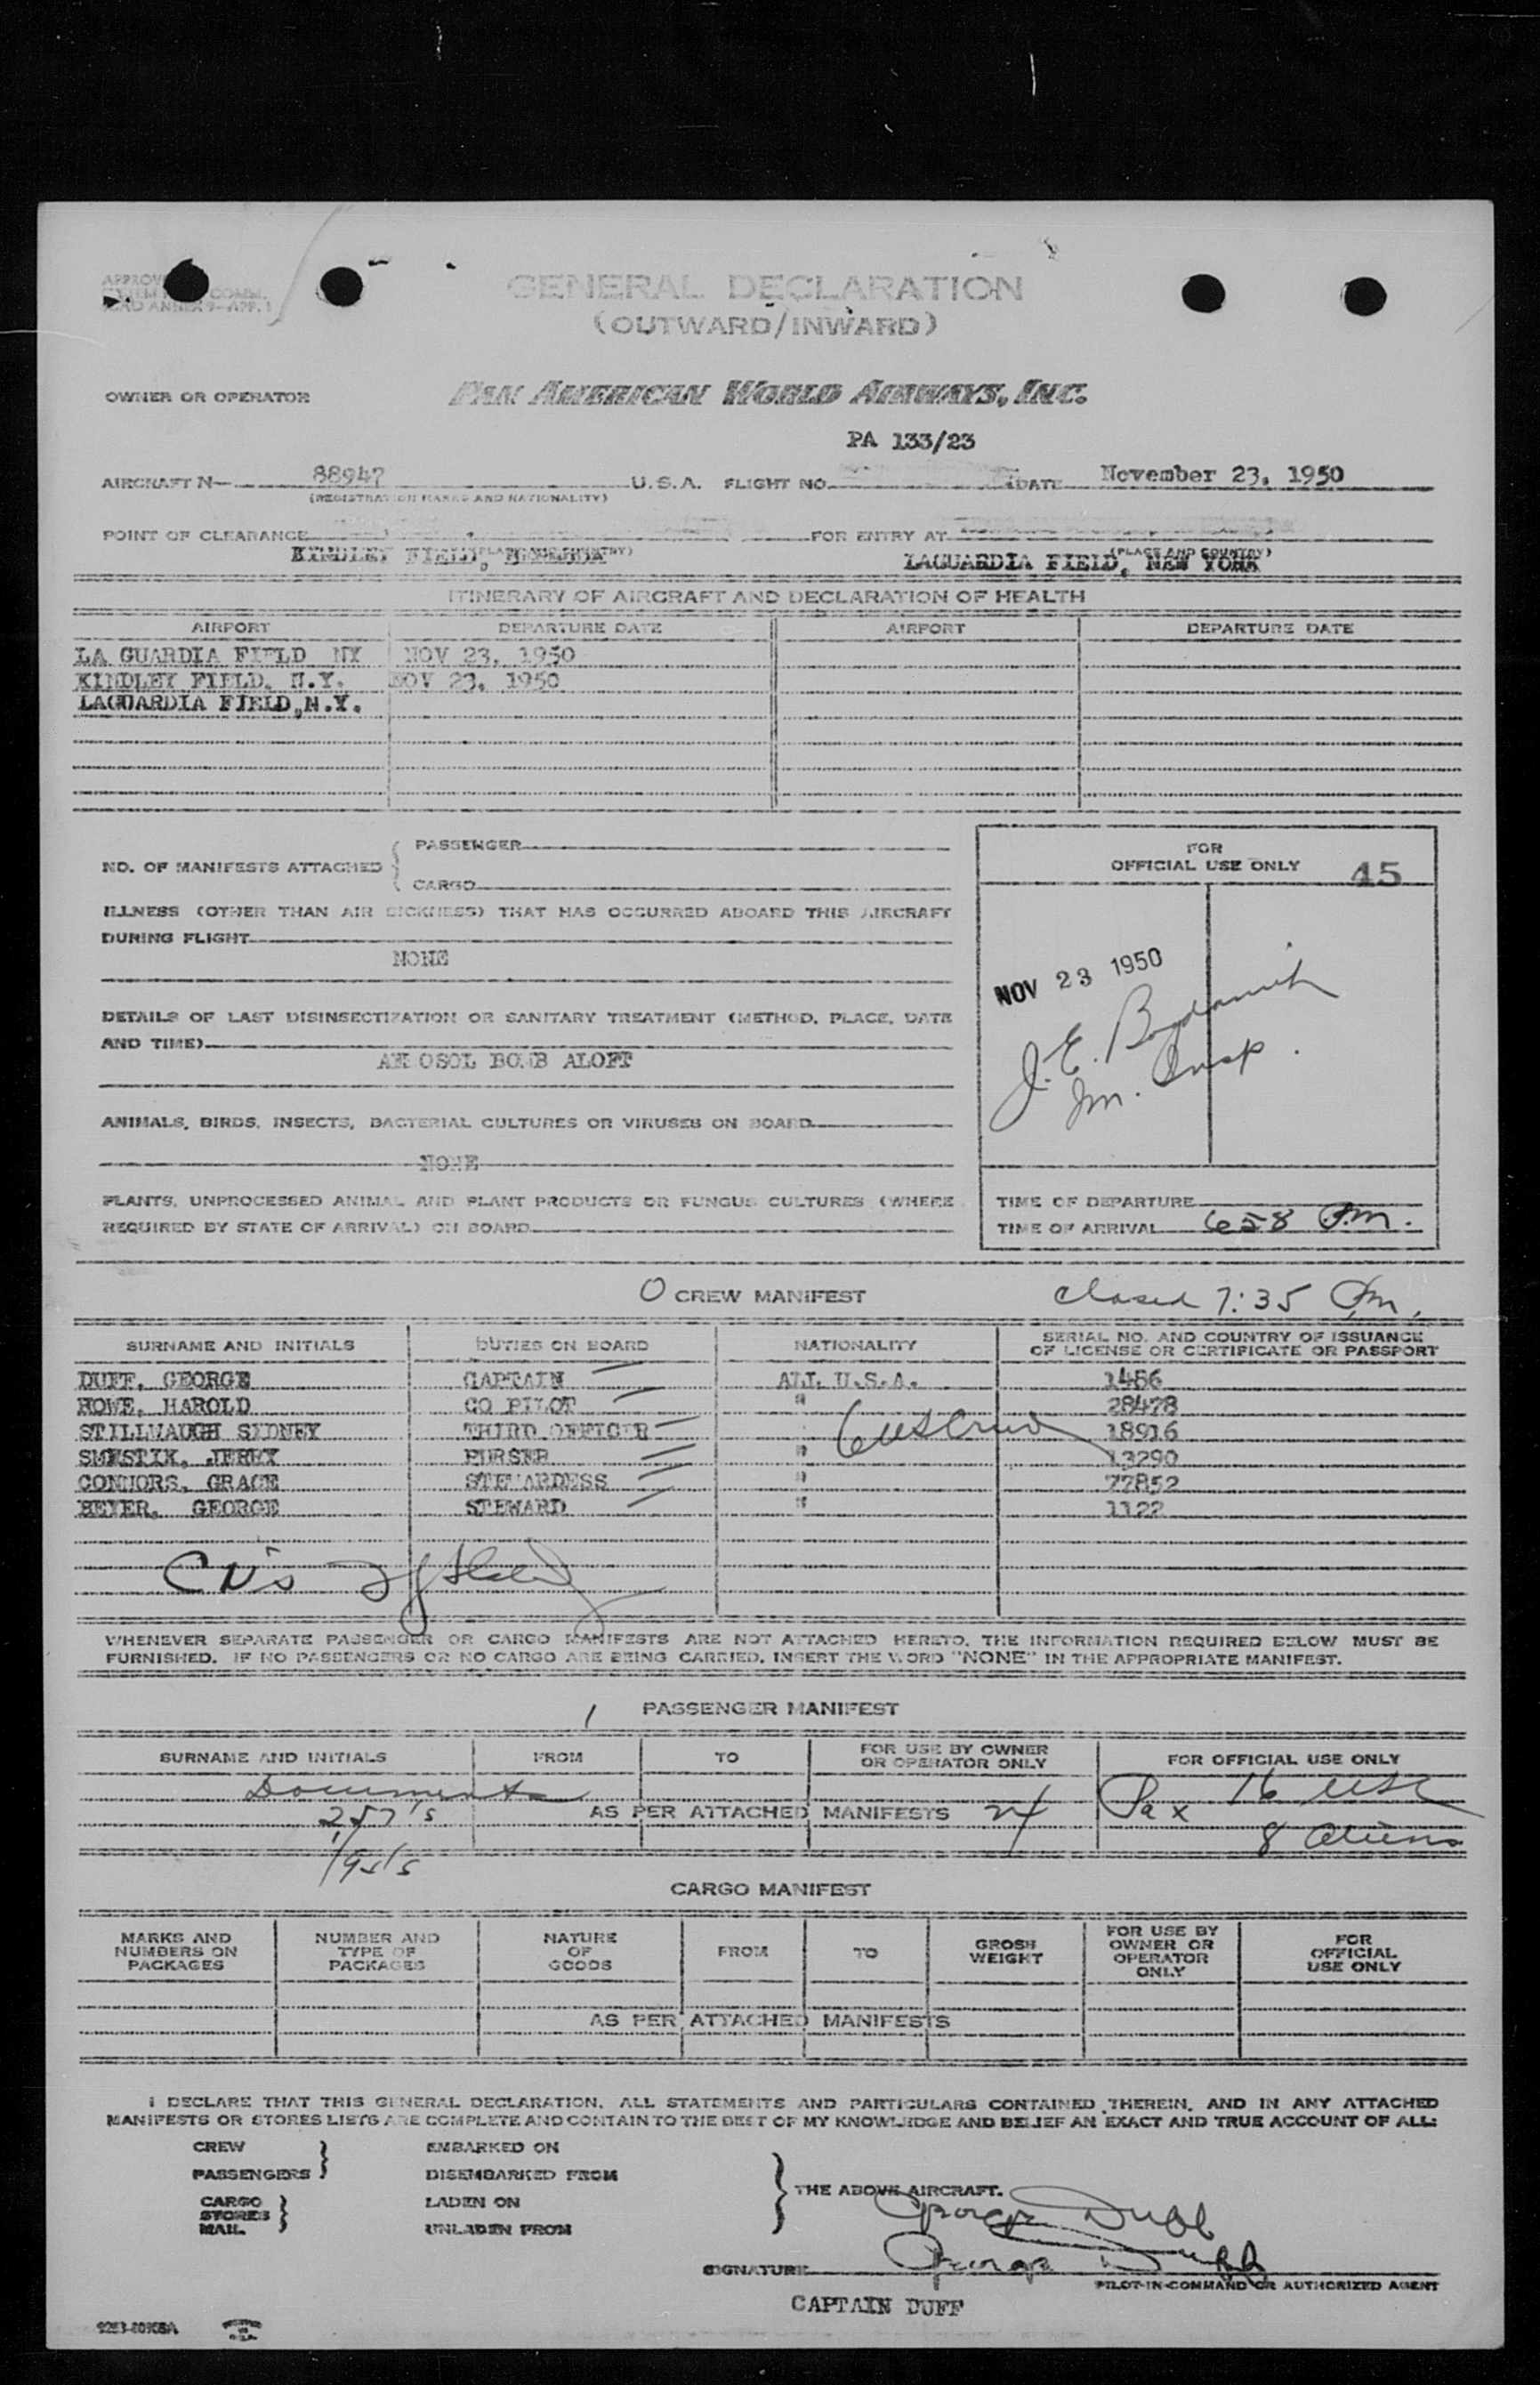 GENERAL DECLARATION
(OUTWARD/INWARD)
OWNER OR OPERATOR PAN AMERICAN WORLD AIRWAYS, INC.
PA 133/23
AIRCRAFT N— 88947 U.S.A. FLIGHT NO. DATE November 23, 1950
(REGISTRATION MARKS AND NATIONALITY)
POINT OF CLEARANCE FOR ENTRY AT
KINDLEY FIELD, BERMUDA (PLACE AND COUNTRY) LAGUARDIA FIELD, NEW YORK (PLACE AND COUNTRY)
ITINERARY OF AIRCRAFT AND DECLARATION OF HEALTH
AIRPORT DEPARTURE DATE AIRPORT DEPARTURE DATE
LA GUARDIA FIELD NY NOV 23, 1950
KINDLEY FIELD, N.Y. NOV 23, 1950
LAGUARDIA FIELD,N.Y.
PASSENGER
NO. OF MANIFESTS ATTACHED
CARGO
ILLNESS (OTHER THAN AIR SICKNESS) THAT HAS OCCURRED ABOARD THIS AIRCRAFT
DURING FLIGHT
NONE
DETAILS OF LAST DISINSECTIZATION OR SANITARY TREATMENT (METHOD, PLACE, DATE
AND TIME)
AEROSOL BOMB ALOFT
ANIMALS, BIRDS, INSECTS, BACTERIAL CULTURES OR VIRUSES ON BOARD
NONE
PLANTS, UNPROCESSED ANIMAL AND PLANT PRODUCTS OR FUNGUS CULTURES (WHERE
REQUIRED BY STATE OF ARRIVAL) ON BOARD
FOR
OFFICIAL USE ONLY 45
NOV 23 1950
J. E.
Im. Insp.
TIME OF DEPARTURE
TIME OF ARRIVAL 658 P.m.
O CREW MANIFEST closed 7:35 Pm.
SURNAME AND INITIALS DUTIES ON BOARD NATIONALITY SERIAL NO. AND COUNTRY OF ISSUANCE
OF LICENSE OR CERTIFICATE OR PASSPORT
DUFF, GEORGE CAPTAIN ALL U.S.A. 1486
HOWE, HAROLD CO PILOT " 28478
STILLWAUGH SYDNEY THIRD OFFICER 18916
SMESTIK, JERRY PURSER " 13290
CONNORS, GRACE STEWARDESS " 77852
BEYER, GEORGE STEWARD " 1122
WHENEVER SEPARATE PASSENGER OR CARGO MANIFESTS ARE NOT ATTACHED HERETO, THE INFORMATION REQUIRED BELOW MUST BE
FURNISHED. IF NO PASSENGERS OR NO CARGO ARE BEING CARRIED, INSERT THE WORD "NONE" IN THE APPROPRIATE MANIFEST.
PASSENGER MANIFEST
SURNAME AND INITIALS FROM TO FOR USE BY OWNER
OR OPERATOR ONLY FOR OFFICIAL USE ONLY
Documents Pax 16 USC
257's AS PER ATTACHED MANIFESTS 24
8 Aliens
CARGO MANIFEST
MARKS AND
NUMBERS ON
PACKAGES
NUMBER AND
TYPE OF
PACKAGES
NATURE
OF
GOODS
FROM
TO
GROSS
WEIGHT
FOR USE BY
OWNER OR
OPERATOR
ONLY
FOR
OFFICIAL
USE ONLY
AS PER ATTACHED MANIFESTS
I DECLARE THAT THIS GENERAL DECLARATION, ALL STATEMENTS AND PARTICULARS CONTAINED THEREIN, AND IN ANY ATTACHED
MANIFESTS OR STORES LISTS ARE COMPLETE AND CONTAIN TO THE BEST OF MY KNOWLEDGE AND BELIEF AN EXACT AND TRUE ACCOUNT OF ALL:
CREW EMBARKED ON
PASSENGERS DISEMBARKED FROM
THE ABOVE AIRCRAFT.
CARGO LADEN ON
STORES
MAIL UNLADEN FROM
George Duff
SIGNATURE George Duff
PILOT-IN-COMMAND OR AUTHORIZED AGENT
CAPTAIN DUFF